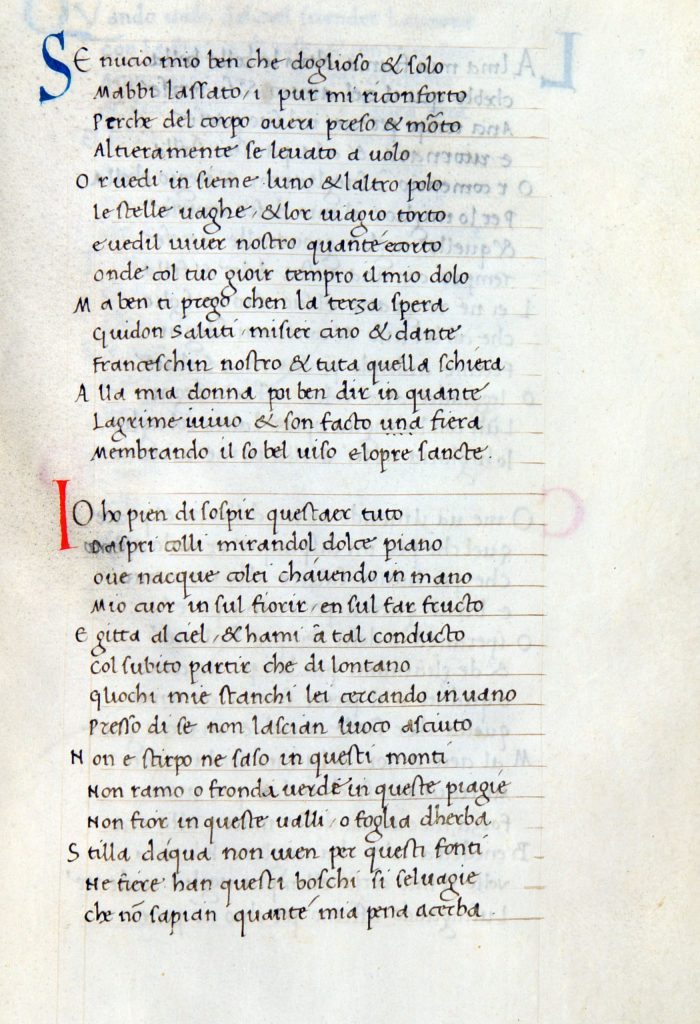 SE nucio mio ben che doglioso & solo
Mabbi lassato, i pur mi riconforto
Perche del corpo oueri preso & mõto
Altieramente se leuato a uolo
Or uedi in sieme luno & laltro polo
le stelle uaghe, & lor uiagio torto
euedil uiuer nostro quanté corto
onde col tuo gioir tempro il mio dolo
Ma ben ti prego chen la terza spera
Guidon saluti misier cino & dante
Franceschin nostro & tuta quella schiera
Alla mia donna poi ben dir in quante
Lagrime uiuo & son facto una fiera
Membrando il so bel uiso elopre sancte.
IO ho pien di sospir questaer tuto
Daspri colli mirandol dolce piano
oue nacque colei chauendo in mano
Mio cuor in sul fiorir, en sul far fructo
E gitta al ciel, & hami a tal conducto
Col subito partir che di lontano
gliochi mie stanchi lei cercando in uano
Presso di se non lascian luoco asciuto
Non e stirpo ne saso in questi monti
Non ramo o fronda uerde in queste piagie
Non fior in queste ualli, o foglia dherba
Stilla daqua non uien per questi fonti
Ne fiere han questi boschi si seluagie
che nõ sapian quanté mia pena acerba.